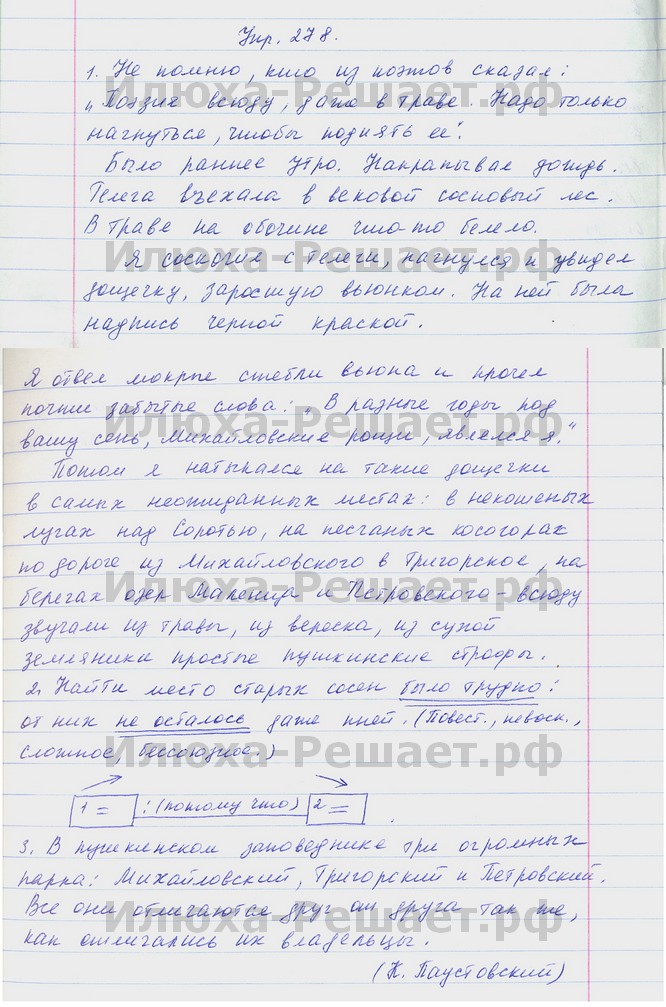 Упр. 278.
1. Не помню, кто из поэтов сказал:
„Поэзия всюду, даже в траве. Надо только
нагнуться, чтобы поднять ее".
Было раннее утро. Накрапывал дождь.
Телега въехала в вековой сосновый лес.
В траве на обочине что-то белело.
Я соскочил с телеги, нагнулся и увидел
дощечку, заросшую вьюнком. На ней была
надпись черной краской.
Я отвел мокрые стебли вьюна и прочел
почти забытые слова: „В разные годы под
вашу сень, Михайловские рощи, являлся я."
Потом я натыкался на такие дощечки
в самых неожиданных местах: в некошеных
лугах над Соротью, на песчаных косогорах
по дороге из Михайловского в Тригорское, на
берегах озер Маленца и Петровского - всюду
звучали из травы, из вереска, из сухой
земляники простые пушкинские строфы.
2. Найти место старых сосен было трудно:
от них не осталось даже пней. (Повест., невоск.,
сложное, бессоюзное.)
1 = : (потому что) 2 = .
3. В пушкинском заповеднике три огромных
парка: Михайловский, Тригорский и Петровский.
Все они отличаются друг от друга так же,
как отличались их владельцы.
(К. Паустовский)
Илюха-Решает.рф
Илюха-Решает.рф
Илюха-Решает.рф
Илюха-Решает.рф
Илюха-Решает.рф
Илюха-Решает.рф